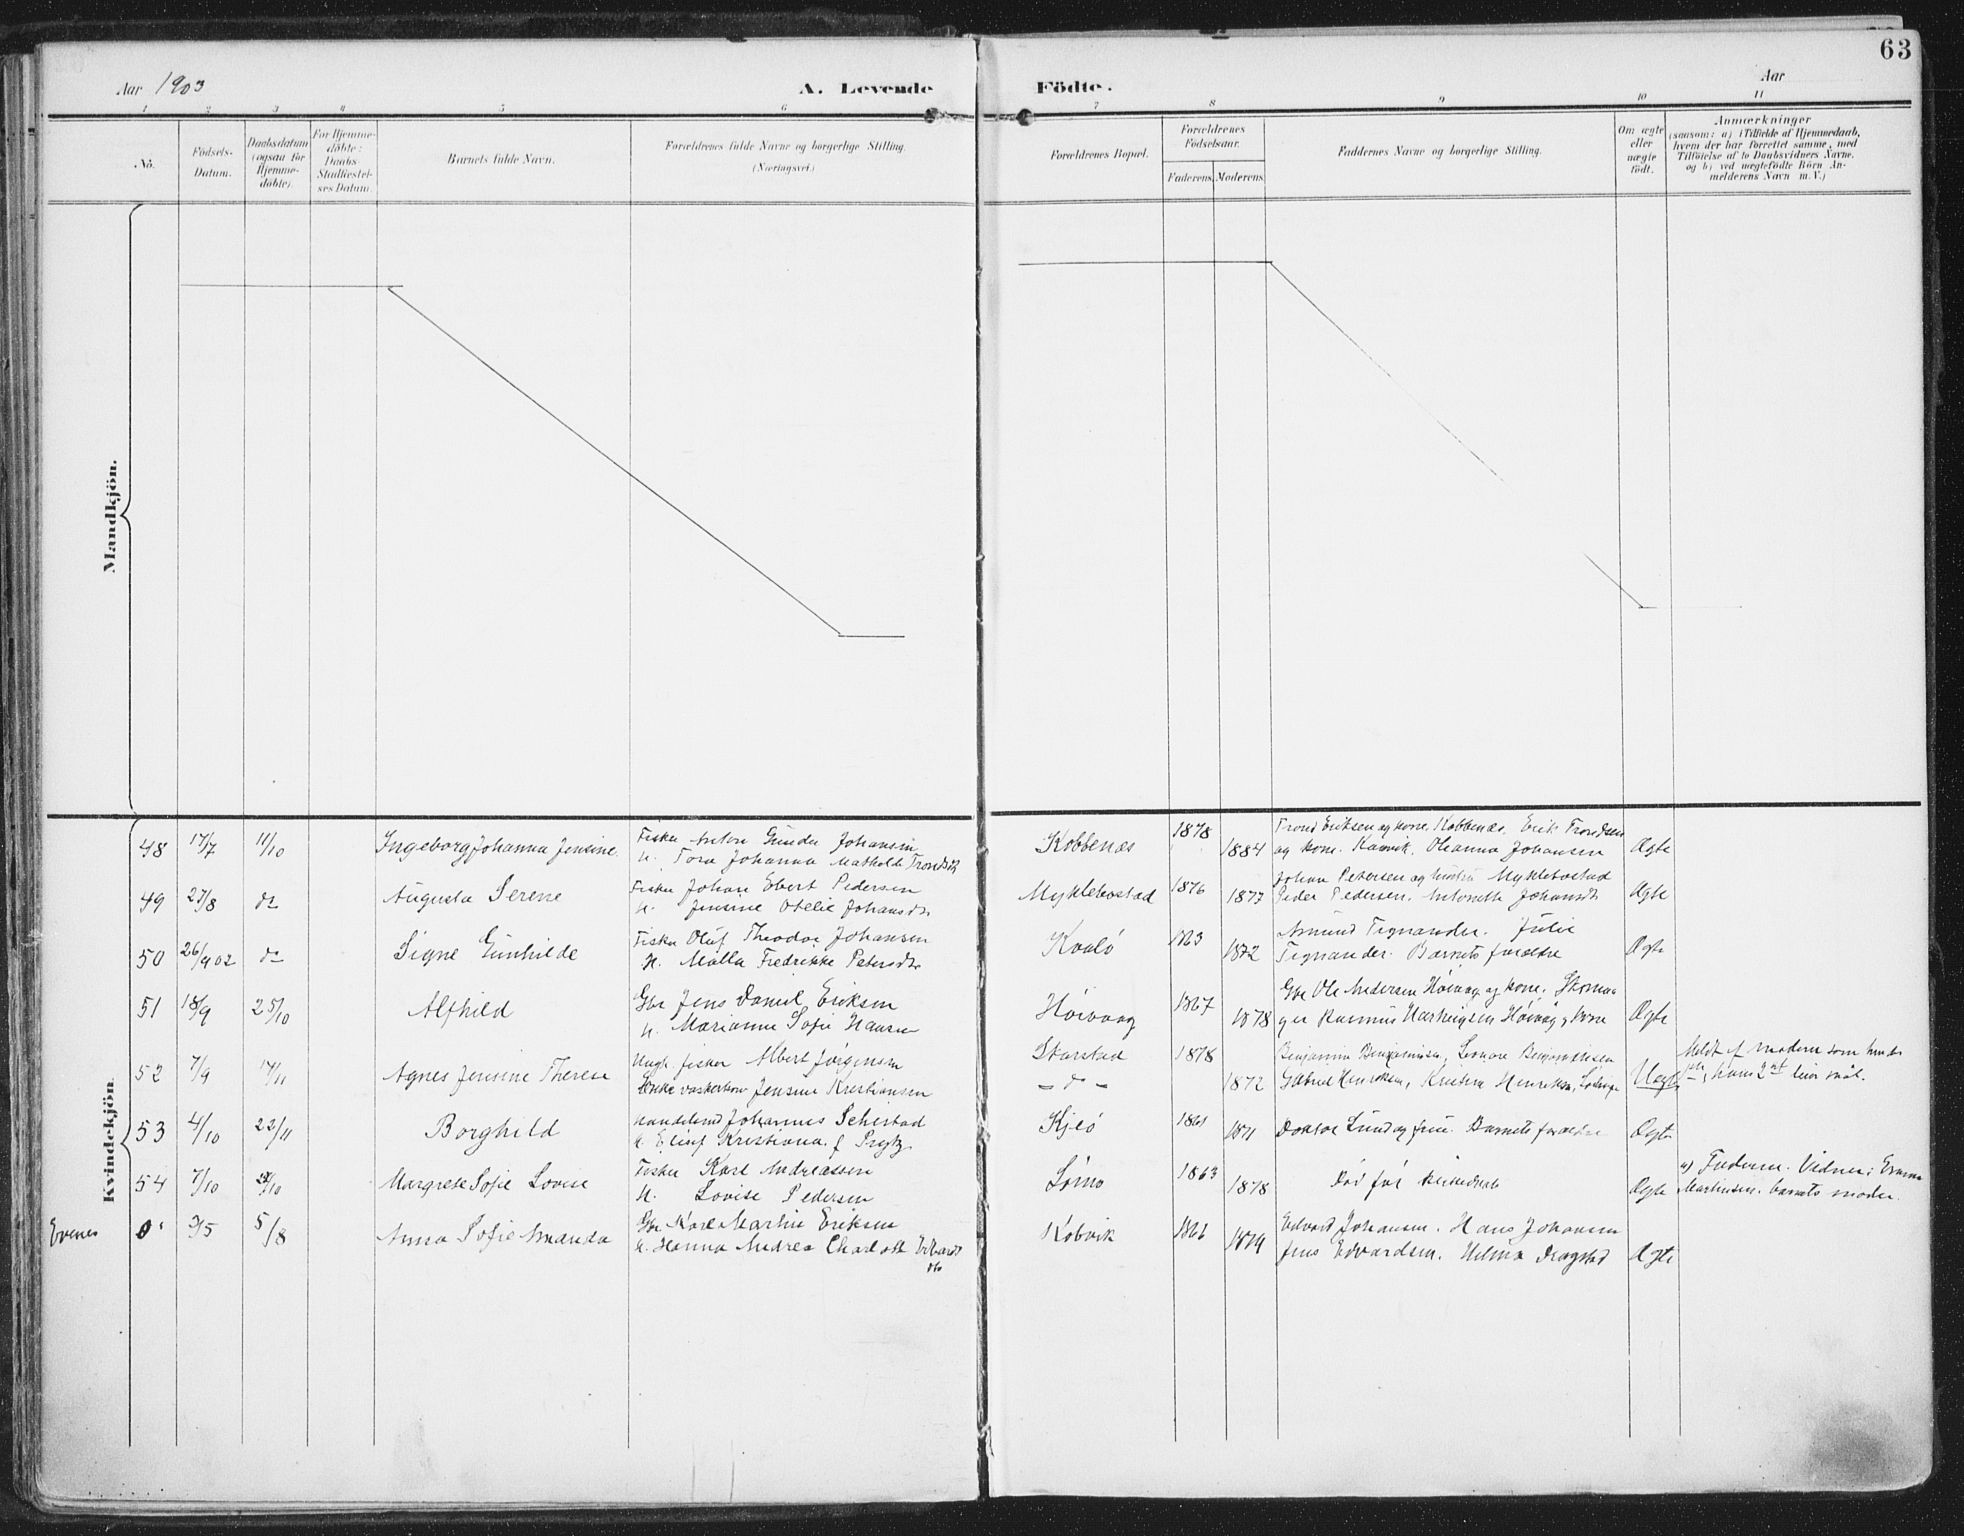 63
Aar 1903
A. Levende
Födte.
Aar
1 2 3 4 5 6 7 8 9 10 11
Nô.
Födsels-
Datum.
Daabsdatum
(ogsaa for
Hjemme-
döbte).
For Hjemme-
döbte:
Daabs-
Stadfæstel-
ses Datum.
Barnets fulde Navn.
Forældrenes fulde Navne og borgerlige Stilling.
(Næringsvei.)
Forældrenes Bopæl.
Forældrenes
Födselsaar.
Faderens. Moderens.
Faddernes Navne og borgerlige Stilling.
Om ægte
eller
uægte
födt.
Anmærkninger
(saasom: a) i Tilfælde af Hjemmedaab,
hvem der har forrettet samme, med
Tilföielse af to Daabsvidners Navne,
og b) ved uægtefödte Börn An-
melderens Navn m. V.)
Mandkjön.
Kvindekjön.
48 17/7 11/10 Ingeborg Johanna Jensine
Fisker Anton Gunder Johansen
H. Tora Johanna Mathilde
Kobbenæs 1878 1884
Trond Eriksen og kone. Kobbenæs. Erik Trondsen
og kone. Kanvik. Oleanna Johansen
Ægte
49 27/8 do Augusta Serene
Fisker Johan Ebert Pedersen
H. Jensine Otelie Johansdt
Myklebostad 1876 1877
Johan Petersen og hustru Myklebostad
Peder Pedersen. Antonette Johansdt
Ægte
50 26/9 02 do Signe Gunhilde
Fisker Oluf Theodor Johansen
H. Malla Fredrikke Petersdt
Kvalö 1863 1872
Amund Tignander. Julie
Tignander. Barnets forældre
Ægte
51 18/9 25/10 Alfhild
Gbr Jens Daniel Eriksen
H. Marianne Sofie Hansen
Höivaag 1867 1878
Gbr Ole Andersen Höivaag og kone. Skoma
ger Rasmus Hartvigsen Höivåg, kone
Ægte
52 7/9 17/11 Agnes Jensine Therese
Ungk. fisker Albert Jörgensen
Enke vaskerkone Jensine Kristiansen
Skarstad 1878
– d – 1872
Benjamin Benjaminsen, Leonore Benjaminsen
Gabriel Henriksen, Kristine Henriksen,
Uægte
Meldt af moderen som hendes
hans 2nt leiermål.
53 4/10 22/11 Borghild
Handelsmd Johannes Sehestad
H. Elisif Kristiana f Prytz
Kjeö 1861 1871
Doktor Lund og frue. Barnets forældre
Ægte
54 7/10 Margrete Sofie Lovise
Fisker Karl Andreassen
H. Lovise Pedersen
Sömo 1863 1878
Död för kirkedaab
Ægte
a) Faderen. Vidner: Emma
Martinsen. barnets moder.
Evenes 0 3/5 5/8 Anna Sofie Amanda
Gbr Karl Martin Eriksen
H. Hanna Andrea Charlotte Edvards
dtr
Kobvik 1861 1874
Edvard Johansen. Hans Johansen
Jens Edvardsen. Helma Dragstad
Ægte